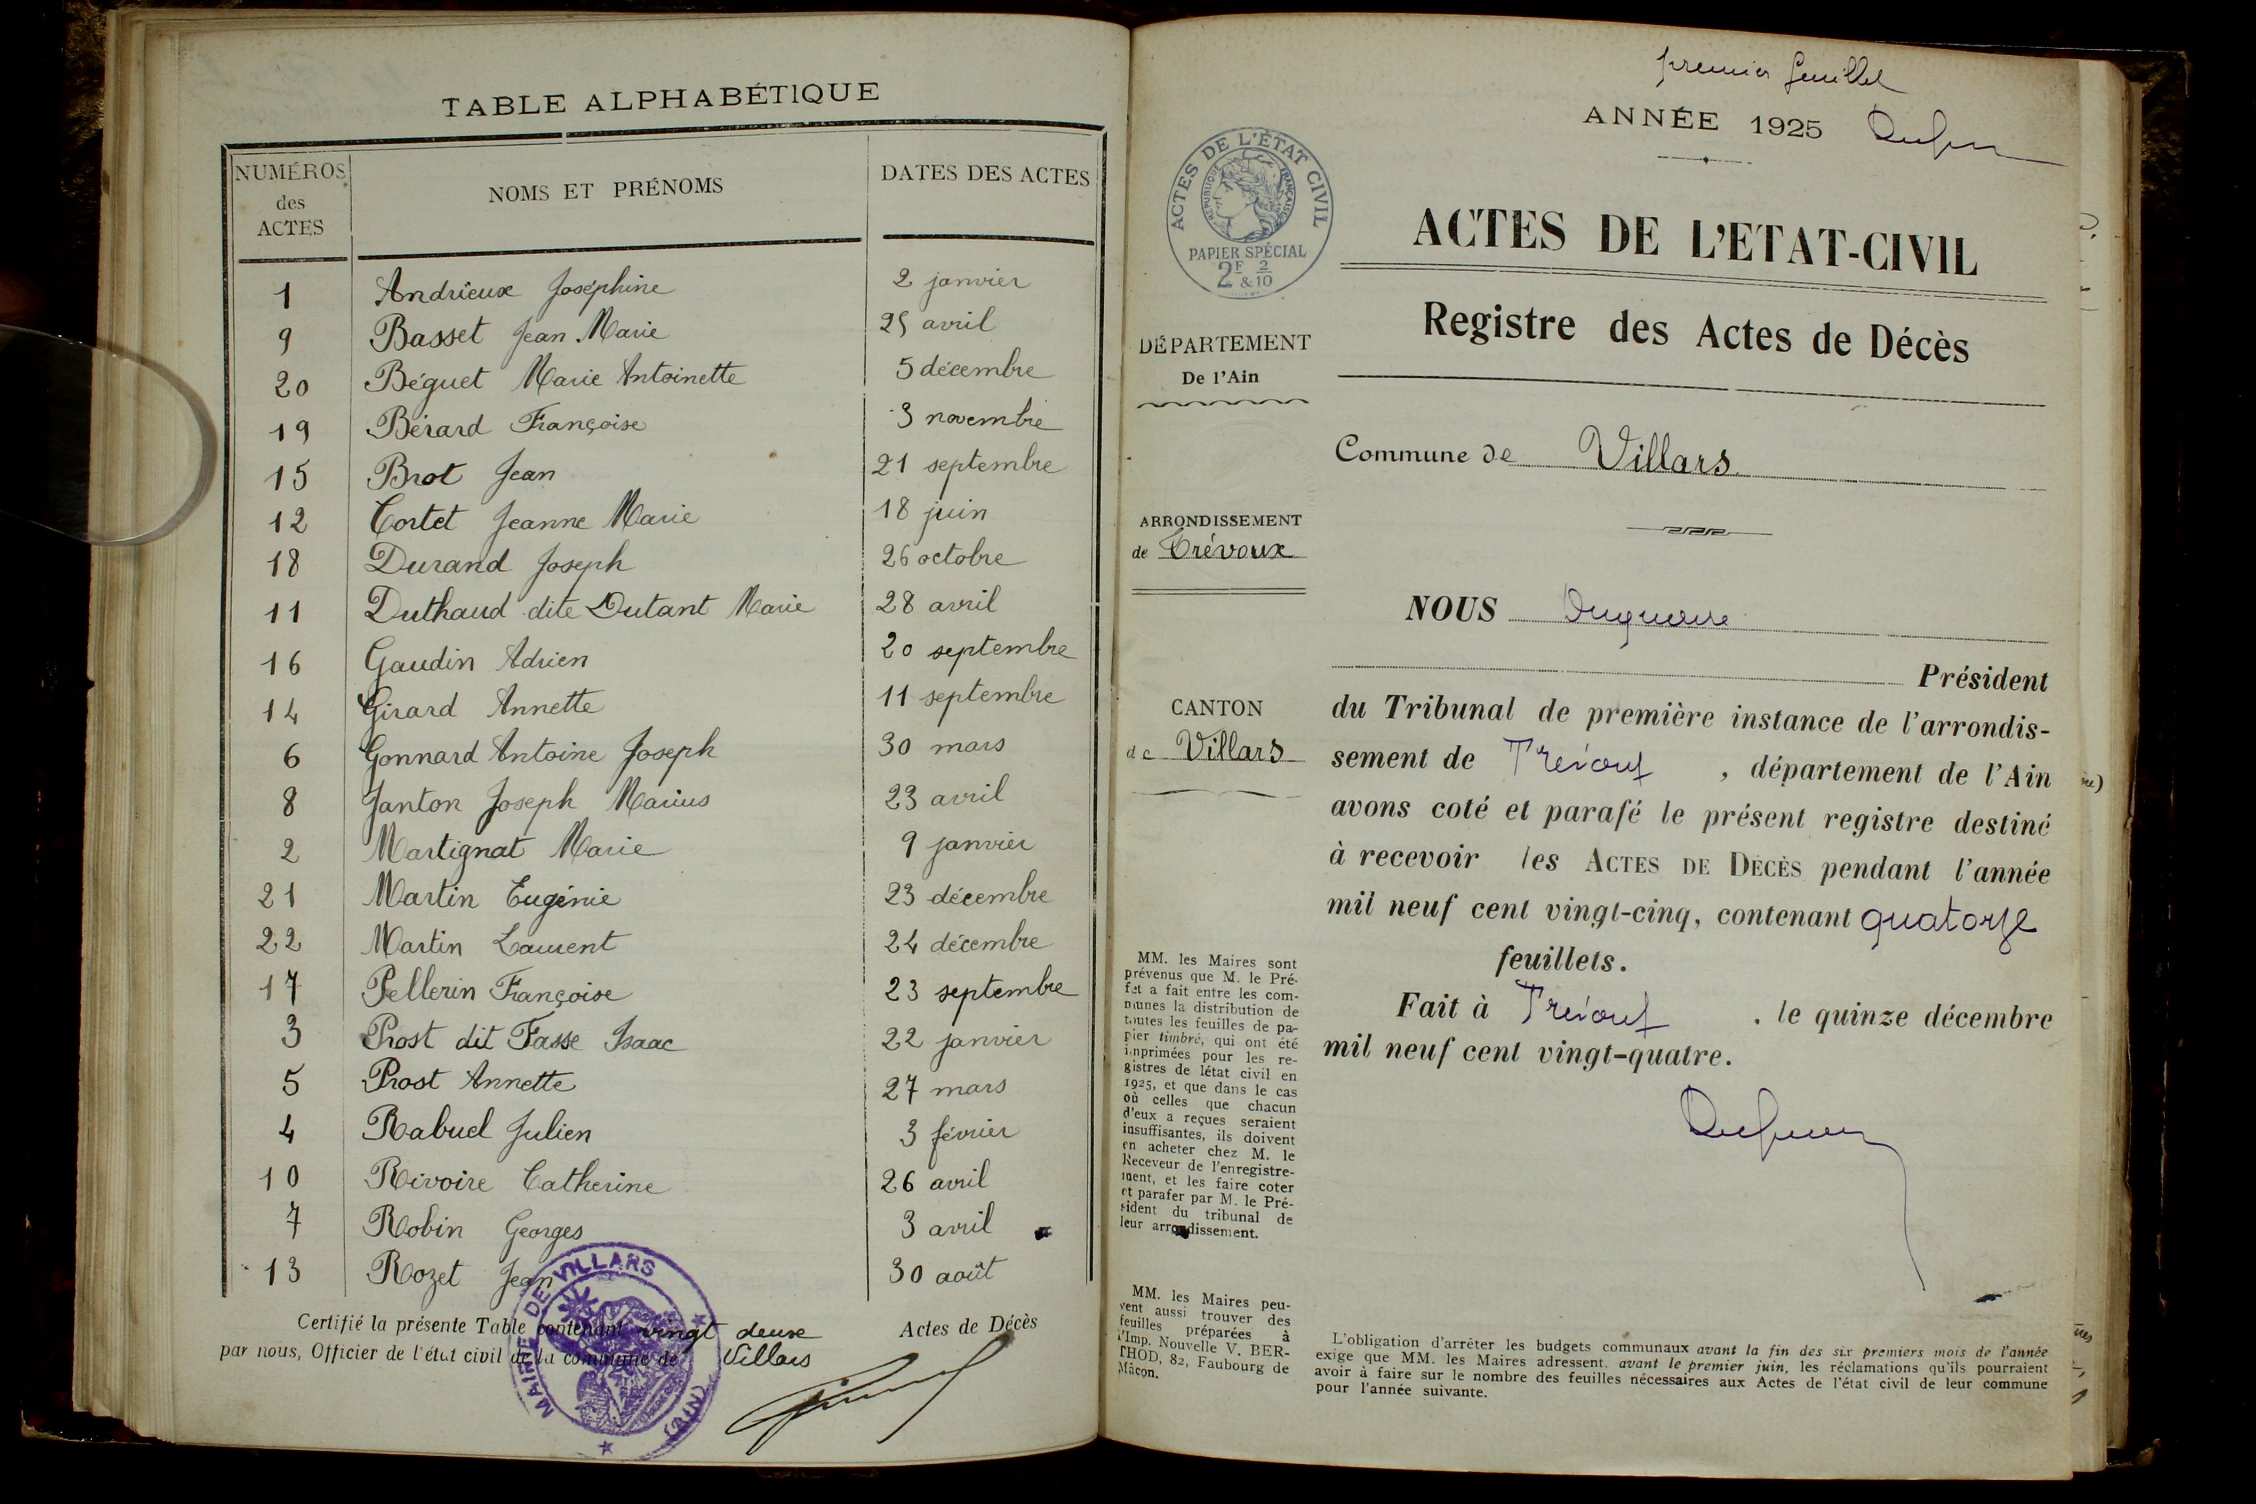 TABLE ALPHABÉTIQUE
NUMÉROS des ACTES NOMS ET PRÉNOMS DATES DES ACTES
1 Andrieux Joséphine 2 janvier
9 Basset Jean Marie 25 avril
20 Béguet Marie Antoinette 5 décembre
19 Bérard Françoise 3 novembre
15 Brot Jean 21 septembre
12 Cortet Jeanne Marie 18 juin
18 Durand Joseph 26 octobre
11 Duthaud dite Dutant Marie 28 avril
16 Gaudin Adrien 20 septembre
14 Girard Annette 11 septembre
6 Gonnard Antoine Joseph 30 mars
8 Janton Joseph Marius 23 avril
2 Martignat Marie 9 janvier
21 Martin Eugénie 23 décembre
22 Martin Laurent 24 décembre
17 Pellerin Françoise 23 septembre
3 Prost dit Fasse Isaac 22 janvier
5 Prost Annette 27 mars
4 Rabuel Julien 3 février
10 Rivoire Catherine 26 avril
7 Robin Georges 3 avril
13 Rozet Jean 30 août
Certifié la présente Table contenant vingt deux Actes de Décès
par nous, Officier de l'état civil de la commune de Villars
MAIRIE DE VILLARS
(AIN)
premier feuillet
ANNÉE 1925
ACTES DE L'ÉTAT CIVIL
RÉPUBLIQUE FRANÇAISE
PAPIER SPÉCIAL
2F & 2/10
ACTES DE L'ETAT-CIVIL
Registre des Actes de Décès
DÉPARTEMENT
De l'Ain
Commune de Villars
ARRONDISSEMENT
de Trévoux
CANTON
de Villars
NOUS
Président
du Tribunal de première instance de l'arrondis-
sement de Trévoux, département de l'Ain
avons coté et parafé le présent registre destiné
à recevoir les ACTES DE DÉCÈS pendant l'année
mil neuf cent vingt-cinq, contenant quatorze
feuillets.
Fait à Trévoux, le quinze décembre
mil neuf cent vingt-quatre.
MM. les Maires sont
prévenus que M. le Pré-
fet a fait entre les com-
munes la distribution de
toutes les feuilles de pa-
pier timbré, qui ont été
imprimées pour les re-
gistres de létat civil en
1925, et que dans le cas
où celles que chacun
d'eux a reçues seraient
insuffisantes, ils doivent
en acheter chez M. le
Receveur de l'enregistre-
ment, et les faire coter
et parafer par M. le Pré-
sident du tribunal de
leur arrondissement.
MM. les Maires peu-
vent aussi trouver des
feuilles préparées à
l'Imp. Nouvelle V. BER-
THOD, 82, Faubourg de
Mâcon.
L'obligation d'arrêter les budgets communaux avant la fin des six premiers mois de l'année
exige que MM. les Maires adressent, avant le premier juin, les réclamations qu'ils pourraient
avoir à faire sur le nombre des feuilles nécessaires aux Actes de l'état civil de leur commune
pour l'année suivante.